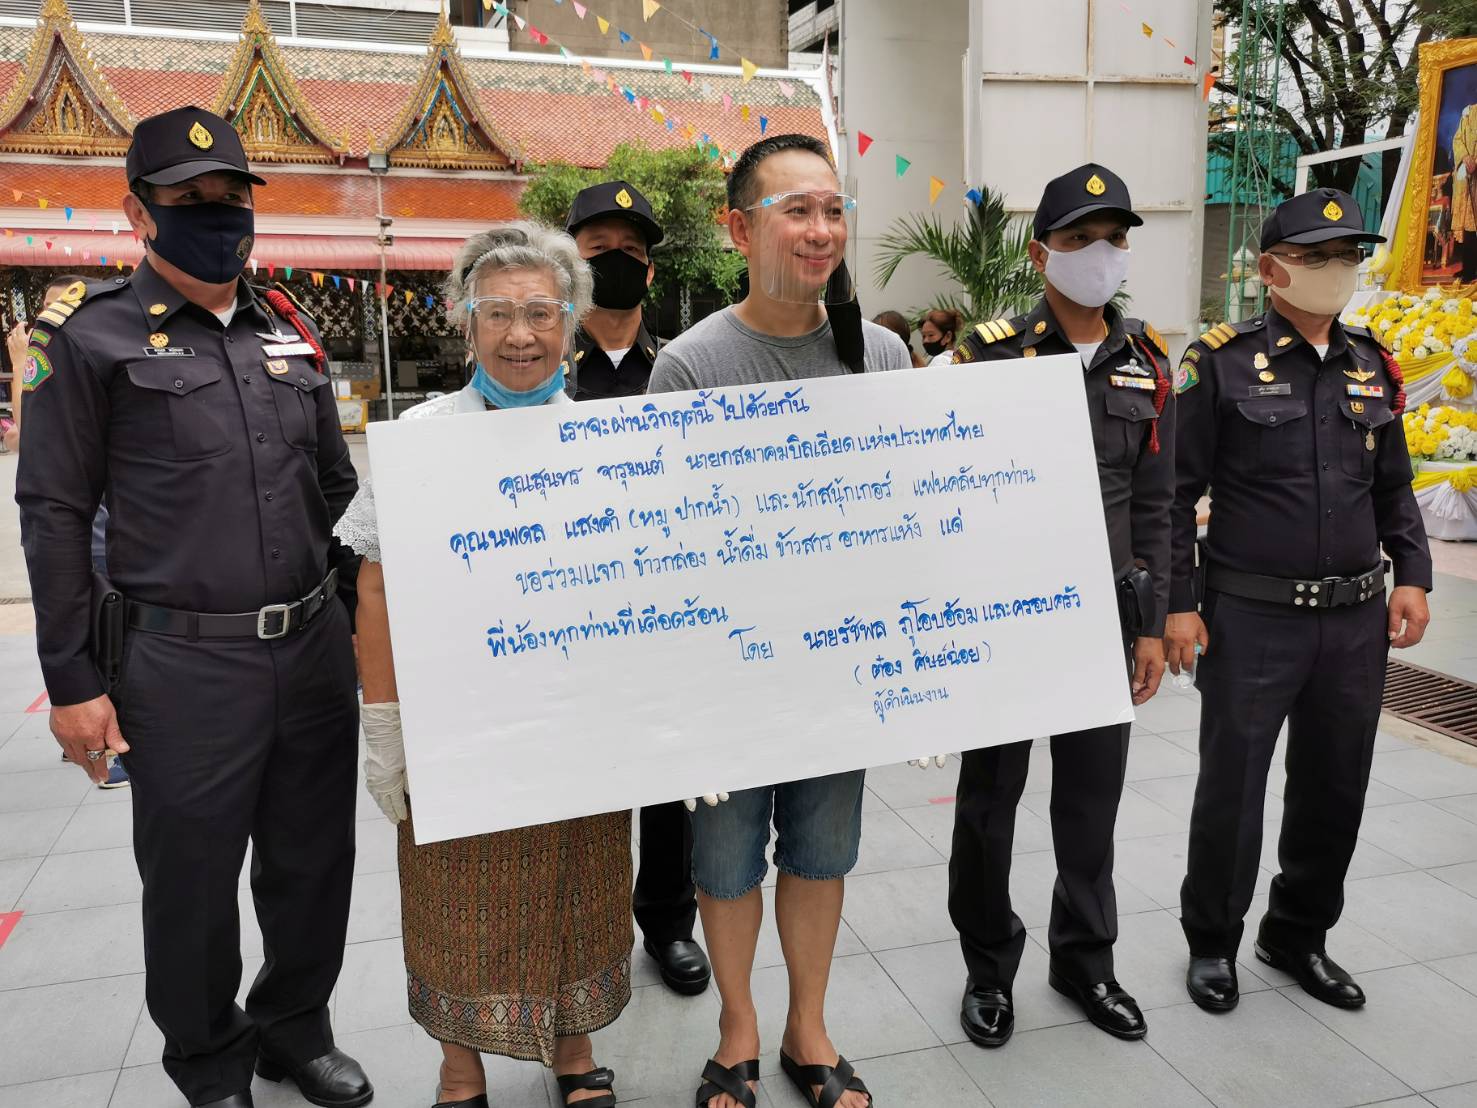 เราจะผ่านวิกฤตนี้ ไปด้วยกัน
คุณสุนทร จารุมนต์ นายกสมาคมบิลเลียดแห่งประเทศไทย
คุณนพดล แสงคำ (หมู ปากน้ำ) และนักสนุ้กเกอร์ แฟนคลับทุกท่าน
ขอร่วมแจก ข้าวกล่อง น้ำดื่ม ข้าวสาร อาหารแห้ง แด่
พี่น้องทุกท่านที่เดือดร้อน
โดย นายรัชพล ภู่โอบอ้อม และครอบครัว
(ต๋อง ศิษย์ฉ่อย)
ผู้ดำเนินงาน